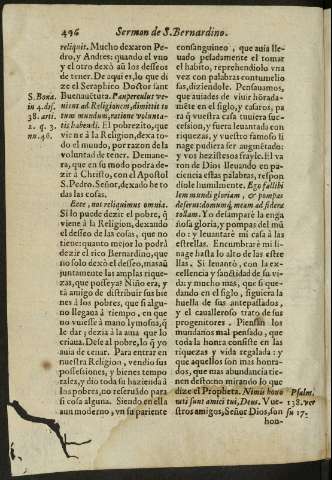 496 Sermon de S. Bernardino.
reliquit. Mucho dexaron Pedro,
y Andres: quando el vno
y el otro dexò aũ los desseos
de tener. De aqui es, lo que dize
el Seraphico Doctor sant
Buenauẽtura. Pauperculus veniens
ad Religionem, dimittit totum
mundum, ratione voluntatis
habendi. El pobrezito, que
viene à la Religion, dexa todo
el mundo, por razon de la
voluntad de tener. Demanera,
que en su modo podra dezir
à Christo, con el Apostol
S. Pedro. Señor, dexado he todas
las cosas.
S. Bona.
in 4. dis.
38. arti.
2. q. 3.
nu. 46.
Ecce, nos reliquimus omnia.
Si lo puede dezir el pobre, q̃
viene à la Religion, dexando
el desseo de las cosas, que no
tiene: quanto mejor lo podrà
dezir el rico Bernardino, que
no solo dexò el desseo, mas aũ
juntamente las amplas riquezas,
que posseya? Niño era, y
tã amigo de distribuir sus bienes
à los pobres, que si alguno
llegaua à tiempo, en que
no vuiesse à mano lymosna, q̃
le dar; dezia à la ama que lo
criaua. Dese al pobre, lo q̃ yo
auia de cenar. Para entrar en
nuestra Religion, vendio sus
possessiones, y bienes temporales,
y dio toda su hazienda à
los pobres, no reseruãdo para
si cosa alguna. Siendo en ella
aun moderno, vn su pariente
consanguineo, que auia lleuado
pesadamente el tomar
el habito, reprehendiolo vna
vez con palabras contumeliosas,
diziendole. Pensauamos,
que auiades de viuir hõradamẽte
en el siglo, casaros, para
q̃ vuestra casa tuuiera succession,
y fuera leuantada con
riquezas, y vuestro famoso linage
pudiera ser augmẽtado:
y vos hezistesos frayle. El varon
de Dios lleuando en paciencia
essas palabras, respondiole
humilmente. Ego fallibilem
mundi gloriam, & pompas
deserui: domumq́; meam ad sidera
tollam. Yo desamparè la engañosa
gloria, y pompas del mũdo:
y leuantarè mi casa à las
estrellas. Encumbrarè mi linage
hasta lo alto de las estrellas.
Si leuantò, con la excellencia
y sanctidad de su vida:
y mucho mas, que si quedando
en el siglo, siguiera la
huella de sus antepassados,
y el cauallerosο trato de sus
progenitores. Piensan los
mundanos mal pensado, que
toda la honra consiste en las
riquezas y vida regalada: y
que aquellos son mas honrados,
que mas abundancia tienen
desto: no mirando lo que
dize el Propheta. Nimis honorati
sunt amici tui, Deus. Vuestros
amigos, Señor Dios, son
Psalm.
138. ver
su 17.
hon-